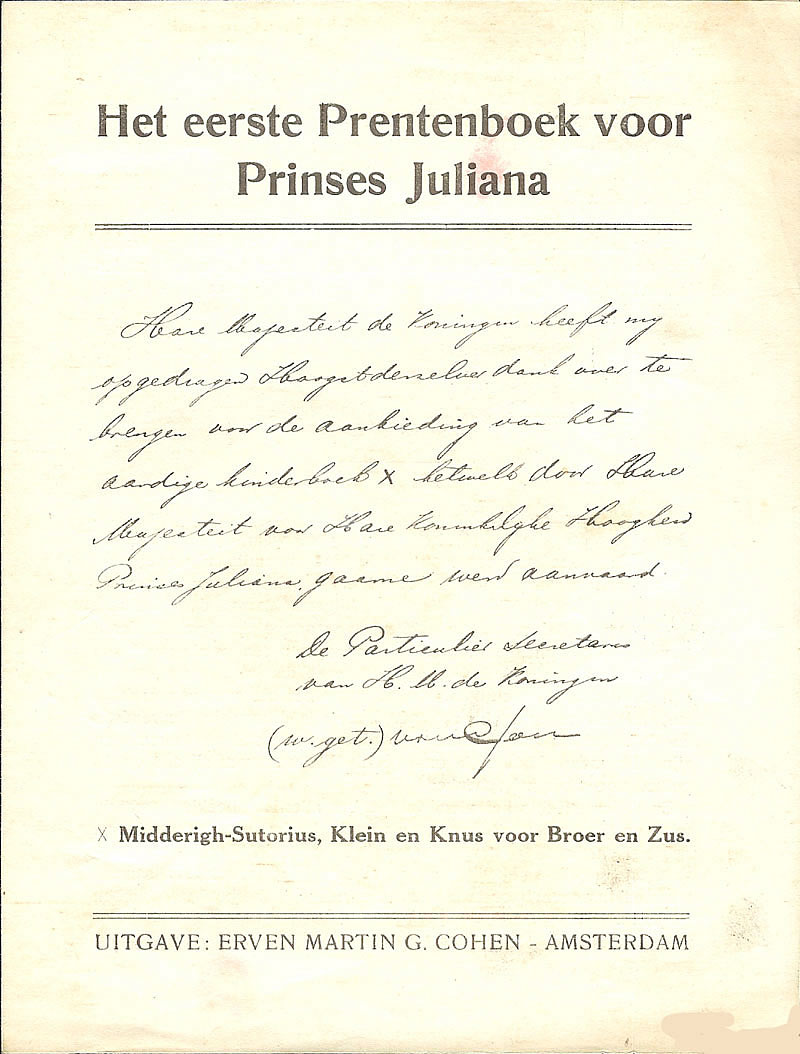 Het eerste Prentenboek voor
Prinses Juliana
Hare Majesteit de Koningin heeft my
opgedragen Hoogstderzelver dank over te
brengen voor de aanbieding van het
aardige kinderboek x hetwelk door Hare
Majesteit voor Hare Koninklyke Hoogheid
Prinses Juliana, gaarne werd aanvaard.
De Particulier Secretaris
van H. M. de Koningin
(w. get.) van
X Midderigh-Sutorius, Klein en Knus voor Broer en Zus.
UITGAVE: ERVEN MARTIN G. COHEN - AMSTERDAM